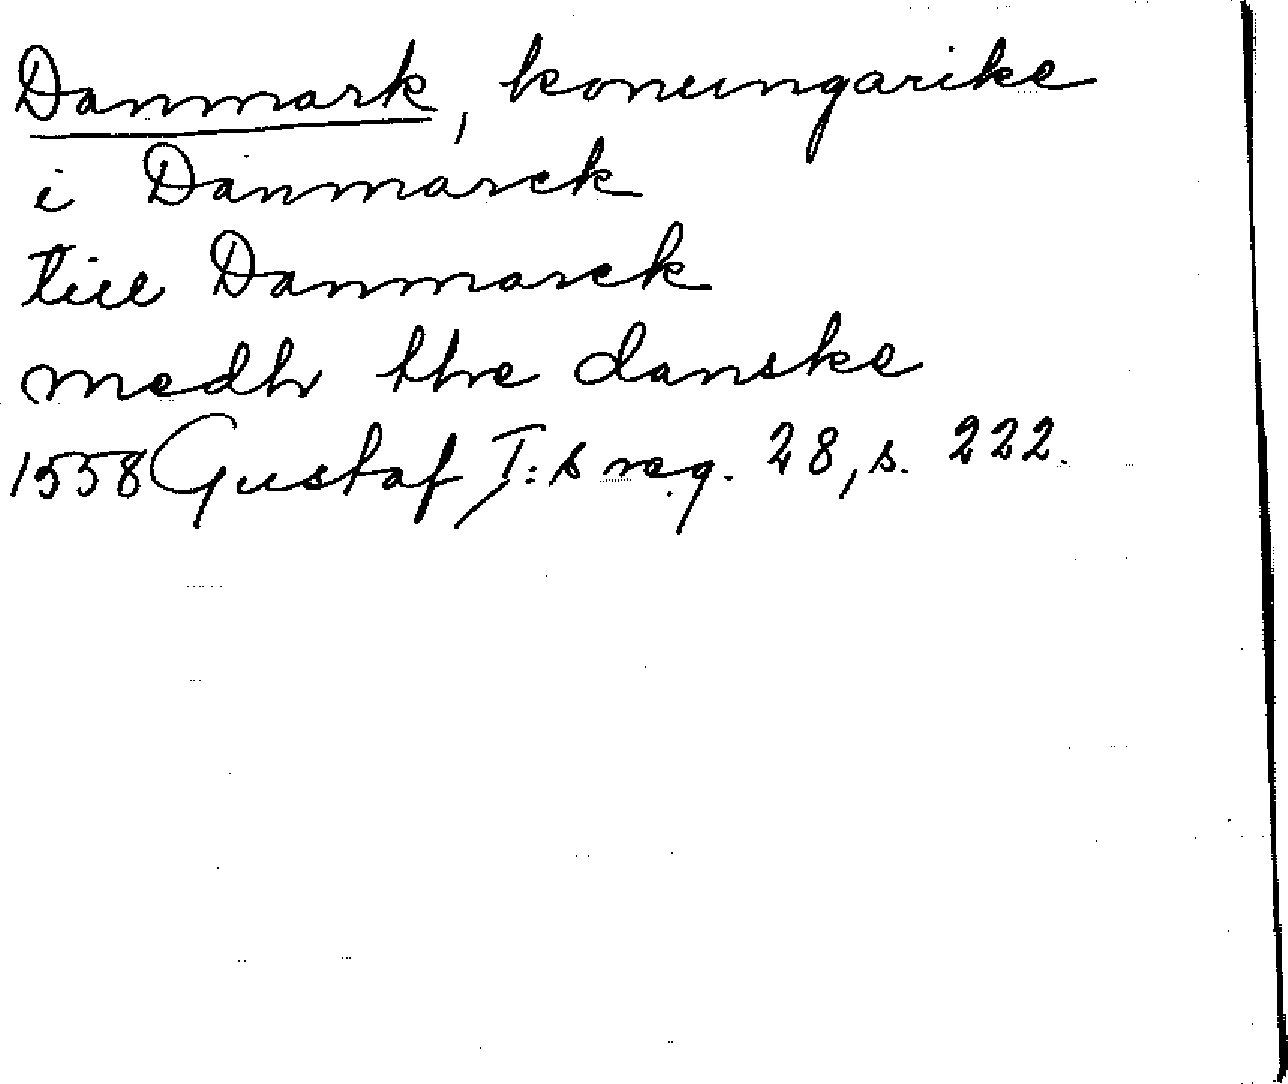 Danmark, konungarike
i Danmarck
till Danmarck
medh thre danske
1558 Gustaf I:s reg. 28, s. 222.